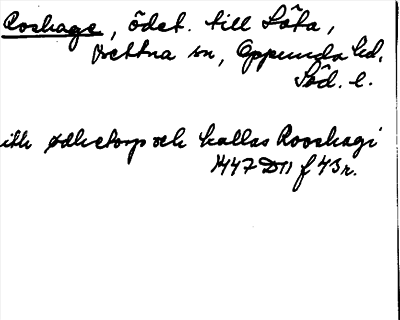 Roshage, ödet. till Söta,
Vettna sn, Oppunda hd.
Söd. l.
ith ødhetorp och kallas Rooshagi
1447 D11 f 43r.